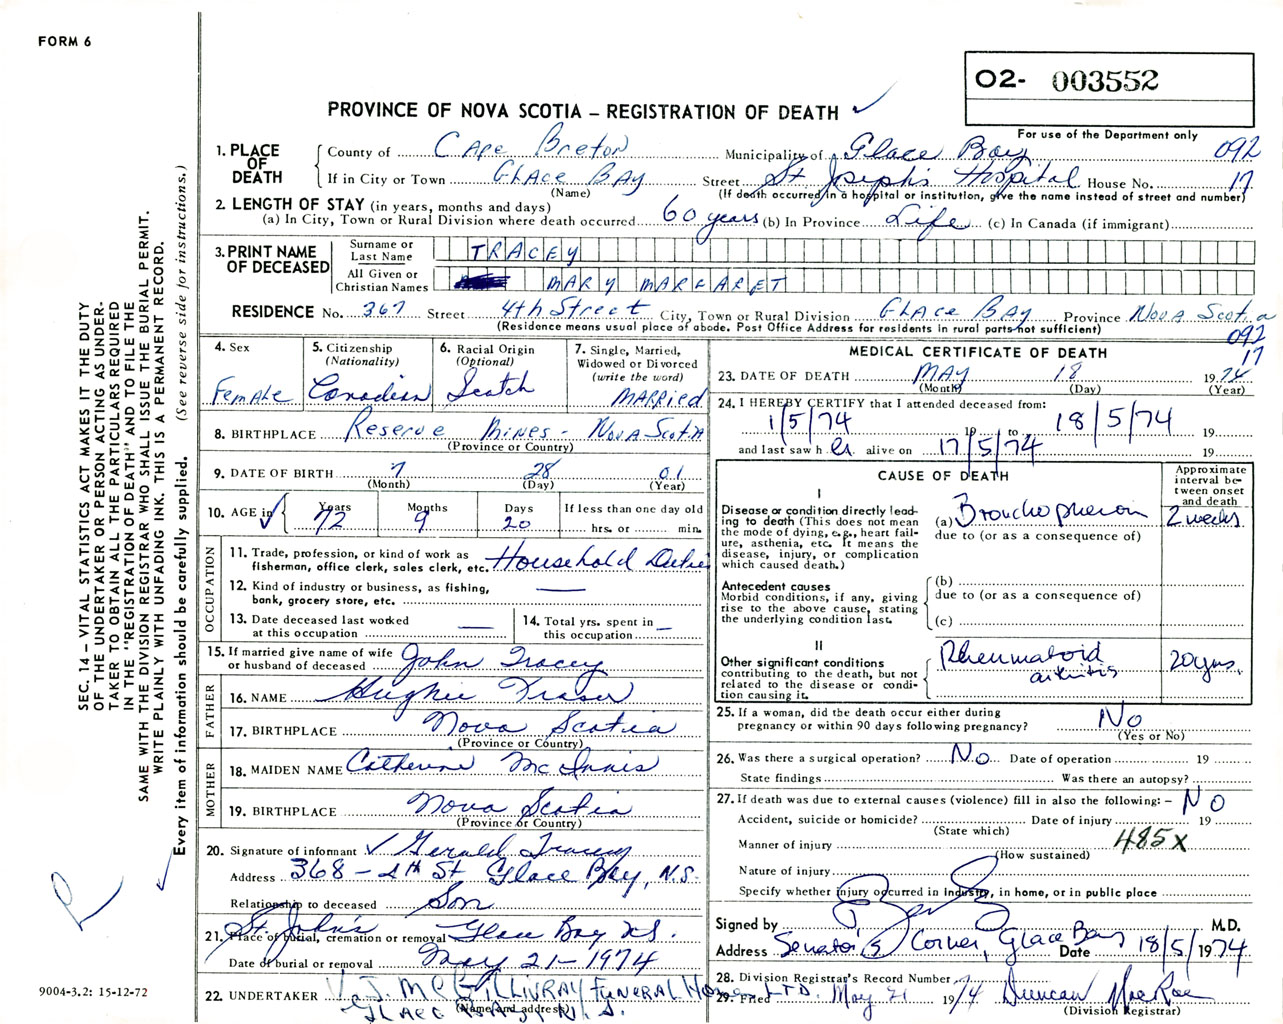 FORM 6
O2- 003552
For use of the Department only
PROVINCE OF NOVA SCOTIA – REGISTRATION OF DEATH ✓
1. PLACE OF DEATH
County of Cape Breton Municipality of Glace Bay 092
If in City or Town Glace Bay Street St Joseph's Hospital House No. 17
(Name) (If death occurred in a hospital or institution, give the name instead of street and number)
2. LENGTH OF STAY (in years, months and days)
(a) In City, Town or Rural Division where death occurred 60 years (b) In Province Life (c) In Canada (if immigrant)
3. PRINT NAME OF DECEASED
Surname or Last Name TRACEY
All Given or Christian Names MARY MARGARET
RESIDENCE No. 367 Street 4th Street City, Town or Rural Division Glace Bay Province Nova Scotia
(Residence means usual place of abode. Post Office Address for residents in rural parts not sufficient)
092
17
4. Sex Female
5. Citizenship (Nationality) Canadian
6. Racial Origin (Optional) Scotch
7. Single, Married, Widowed or Divorced (write the word) Married
8. BIRTHPLACE Reserve Mines - Nova Scotia
(Province or Country)
9. DATE OF BIRTH 7 28 01
(Month) (Day) (Year)
10. AGE in ✓ Years 72 Months 9 Days 20 If less than one day old hrs. or min.
OCCUPATION
11. Trade, profession, or kind of work as fisherman, office clerk, sales clerk, etc. Household Duties
12. Kind of industry or business, as fishing, bank, grocery store, etc. —
13. Date deceased last worked at this occupation —
14. Total yrs. spent in this occupation —
15. If married give name of wife or husband of deceased John Tracey
FATHER
16. NAME Hughie Fraser
17. BIRTHPLACE Nova Scotia
(Province or Country)
MOTHER
18. MAIDEN NAME Catherine McInnis
19. BIRTHPLACE Nova Scotia
(Province or Country)
20. Signature of informant ✓ Gerald Tracey
Address 368 - 4th St Glace Bay, N.S.
Relationship to deceased Son
21. Place of burial, cremation or removal St. John's Glace Bay N.S.
Date of burial or removal May 21 - 1974
22. UNDERTAKER V. J. McGillivray Funeral Home LTD.
(Name and address) Glace Bay, N. S.
MEDICAL CERTIFICATE OF DEATH
23. DATE OF DEATH MAY 18 1974
(Month) (Day) (Year)
24. I HEREBY CERTIFY that I attended deceased from:
1/5/74 19 to 18/5/74 19
and last saw h er alive on 17/5/74 19
CAUSE OF DEATH
Approximate interval between onset and death
I
Disease or condition directly leading to death (This does not mean the mode of dying, e.g., heart failure, asthenia, etc. It means the disease, injury, or complication which caused death.)
(a) Bronchopneumon 2 weeks
due to (or as a consequence of)
Antecedent causes
Morbid conditions, if any, giving rise to the above cause, stating the underlying condition last.
(b)
due to (or as a consequence of)
(c)
II
Other significant conditions contributing to the death, but not related to the disease or condition causing it.
Rheumatoid arthritis 20 yrs.
25. If a woman, did the death occur either during pregnancy or within 90 days following pregnancy? No
(Yes or No)
26. Was there a surgical operation? No Date of operation 19
State findings Was there an autopsy?
27. If death was due to external causes (violence) fill in also the following: – NO
Accident, suicide or homicide? Date of injury 19
(State which)
485X
Manner of injury
(How sustained)
Nature of injury
Specify whether injury occurred in industry, in home, or in public place
Signed by M.D.
Address Senator's Corner, Glace Bay Date 18/5/1974
28. Division Registrar's Record Number
29. Filed May 21 1974 Duncan MacRae
(Division Registrar)
SEC. 14 – VITAL STATISTICS ACT MAKES IT THE DUTY
OF THE UNDERTAKER OR PERSON ACTING AS UNDER-
TAKER TO OBTAIN ALL THE PARTICULARS REQUIRED
IN THE "REGISTRATION OF DEATH" AND TO FILE THE
SAME WITH THE DIVISION REGISTRAR WHO SHALL ISSUE THE BURIAL PERMIT.
WRITE PLAINLY WITH UNFADING INK. THIS IS A PERMANENT RECORD.
Every item of information should be carefully supplied. (See reverse side for instructions.)
9004-3.2: 15-12-72